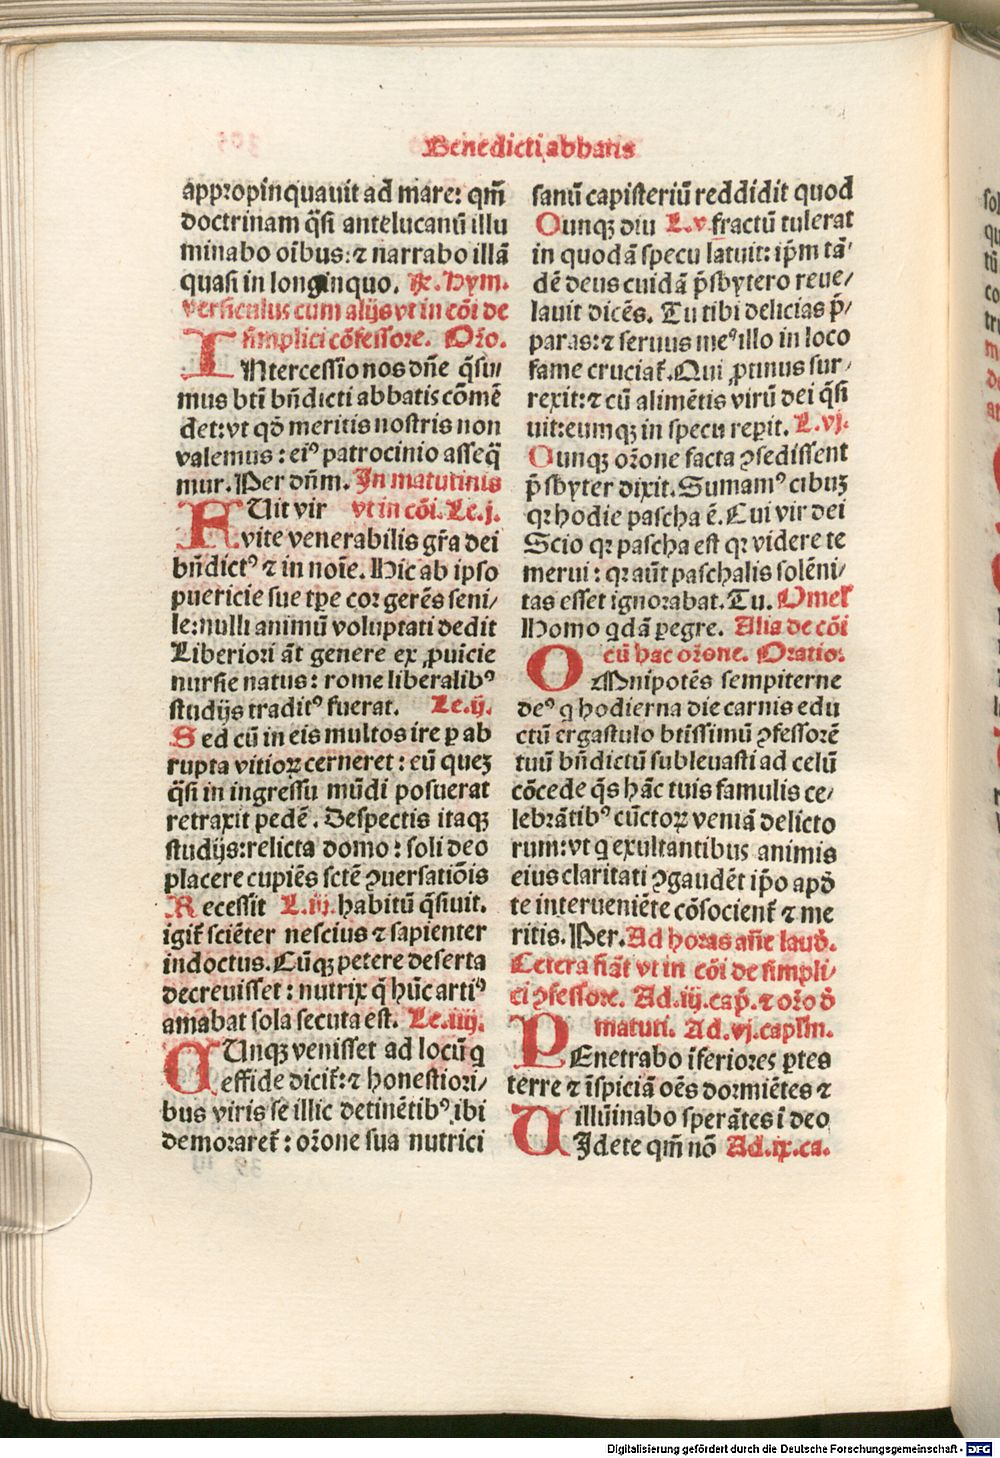 Benedicti abbatis
appropinquauit ad mare: qm̄
doctrinam q̄si antelucanū illu
minabo oı̄bus: ⁊ narrabo illā
quasi in longinquo. Hym.
versiculus cum alijs vt in cōi de
simplici cōfessore. Oŕo.
INtercessio nos dn̄e q̄su/
mus btı̄ bn̄dicti abbatis cōmē
det: vt qđ meritis nostris non
valemus: eiꝰ patrocinio asseq̄
mur. Per dn̄m. In matutinis
FUit vir vt in cōi. Le. j.
vite venerabilis gr̄a dei
bn̄dictꝰ ⁊ in noı̄e. Hic ab ipso
puericie sue tꝑe cor gerēs seni/
le: nulli animū voluptati dedit
Liberiori āt genere ex ꝓuı̄cie
nursie natus: rome liberalibꝰ
studijs traditꝰ fuerat. Le. ij.
Sed cū in eis multos ire ꝑ ab
rupta vitioꝝ cerneret: eū quez
q̄si in ingressu mūdi posuerat
retraxit pedē. Despectis itaqꝫ
studijs: relicta domo: soli deo
placere cupiēs scte ꝯuersatiōis
Recessit L. iij. habitū q̄siuit.
igit̄ sciēter nescius ⁊ sapienter
indoctus. Cūqꝫ petere deserta
decreuisset: nutrix q̄ hūc artiꝰ
amabat sola secuta est. Le. iiij.
CUnqꝫ venisset ad locū q
effide dicit̄: ⁊ honestiori/
bus viris se illic detinētibꝰ ibi
demoraret̄: oŕone sua nutrici
sanū capisteriū reddidit quod
Cunqꝫ diu L. v. fractū tulerat
in quodā specu latuit: ip̄m tā/
dē deus cuidā p̄sbytero reue/
lauit dicēs. Tu tibi delicias p̄/
paras: ⁊ seruus meꝰ illo in loco
fame cruciat̄. Qui ꝓtinus sur/
rexit: ⁊ cū alimētis virū dei q̄si
uit: eumqꝫ in specu reꝑit. L. vj.
Cunqꝫ oŕone facta ꝯsedissent
p̄sbyter dixit. Sumamꝰ cibuꝫ
qꝛ hodie pascha ē. Cui vir dei
Scio qꝛ pascha est qꝛ videre te
merui: qꝛ aūt paschalis solēni/
tas esset ignorabat. Tu. Omel̄
Homo qdā ꝑegre. Alia de cōi
cū hac oŕone. Oratio:
OMnipotēs sempiterne
deꝰ q hodierna die carnis edu
ctū ergastulo btı̄ssimū ꝯfessorē
tuū bn̄dictū subleuasti ad celū
cōcede q̄s hāc tuis famulis ce/
lebrātibꝰ cūctoꝝ veniā delicto
rum: vt q exultantibus animis
eius claritati ꝯgaudēt ip̄o apđ
te interueniēte cōsocient̄ ⁊ me
ritis. Per. Ad horas an̄e lauđ.
Cetera fiāt vt in cōi de simpli/
ci ꝯfessore. Ad. iij. cap̄. ⁊ oŕo đ
matuti. Ad. vj. capl̄m.
PEnetrabo ı̄feriores ꝑtes
terre ⁊ ı̄spiciā oēs dormiētes ⁊
illūinabo sperātes ı̄ deo
UJdete qm̄ nō Ad. ix. ca.
Digitalisierung gefördert durch die Deutsche Forschungsgemeinschaft - DFG